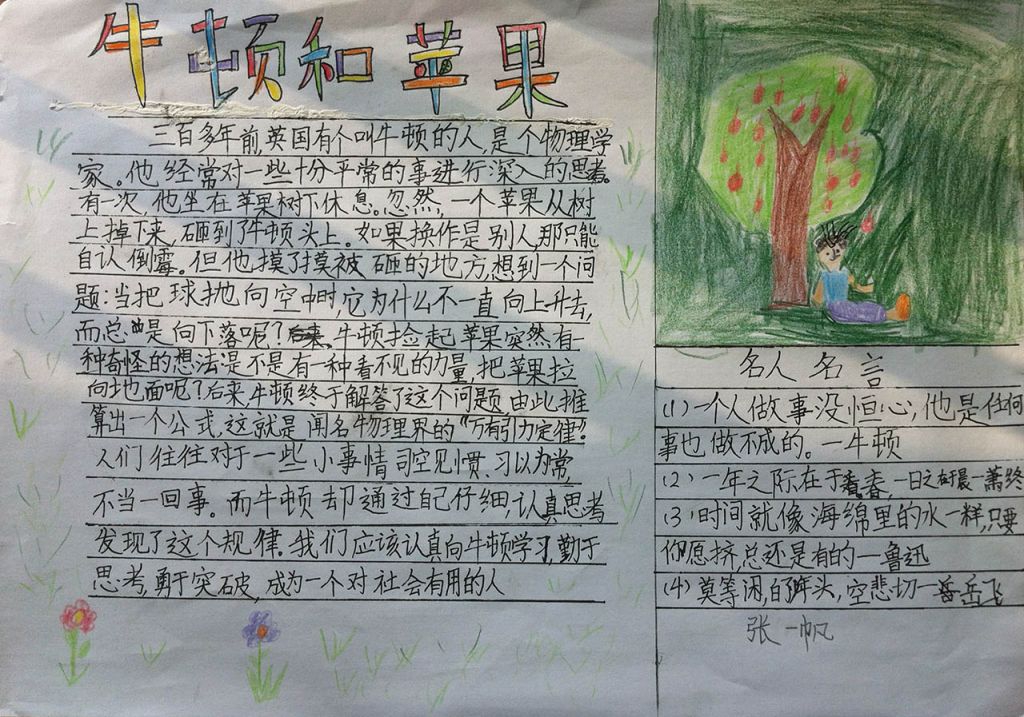 牛顿和苹果
三百多年前,英国有个叫牛顿的人,是个物理学
家。他经常对一些十分平常的事进行深入的思考。
有一次,他坐在苹果树下休息。忽然,一个苹果从树
上掉下来,砸到了牛顿头上。如果换作是别人,那只能
自认倒霉。但他摸了摸被砸的地方,想到一个问
题:当把球抛向空中时,它为什么不一直向上升去,
而总是向下落呢?牛顿捡起苹果突然有一
种奇怪的想法:是不是有一种看不见的力量,把苹果拉
向地面呢?后来,牛顿终于解答了这个问题,由此推
算出一个公式,这就是闻名物理界的“万有引力定律”。
人们往往对于一些小事情司空见惯、习以为常,
不当一回事。而牛顿却通过自己仔细,认真思考
发现了这个规律。我们应该认真向牛顿学习,勤于
思考,勇于突破,成为一个对社会有用的人
名人名言
(1)一个人做事没恒心,他是任何
事也做不成的。—牛顿
(2)一年之际在于春,一日之在于晨—萧绎
(3)时间就像海绵里的水一样,只要
你愿挤,总还是有的—鲁迅
(4)莫等闲,白了头,空悲切—岳飞
张一帆